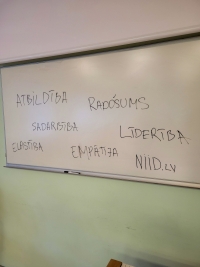 ATBILDĪBA
RADOŠUMS
SADARBĪBA
LĪDERĪBA
EMPĀTIJA
NIID.LV